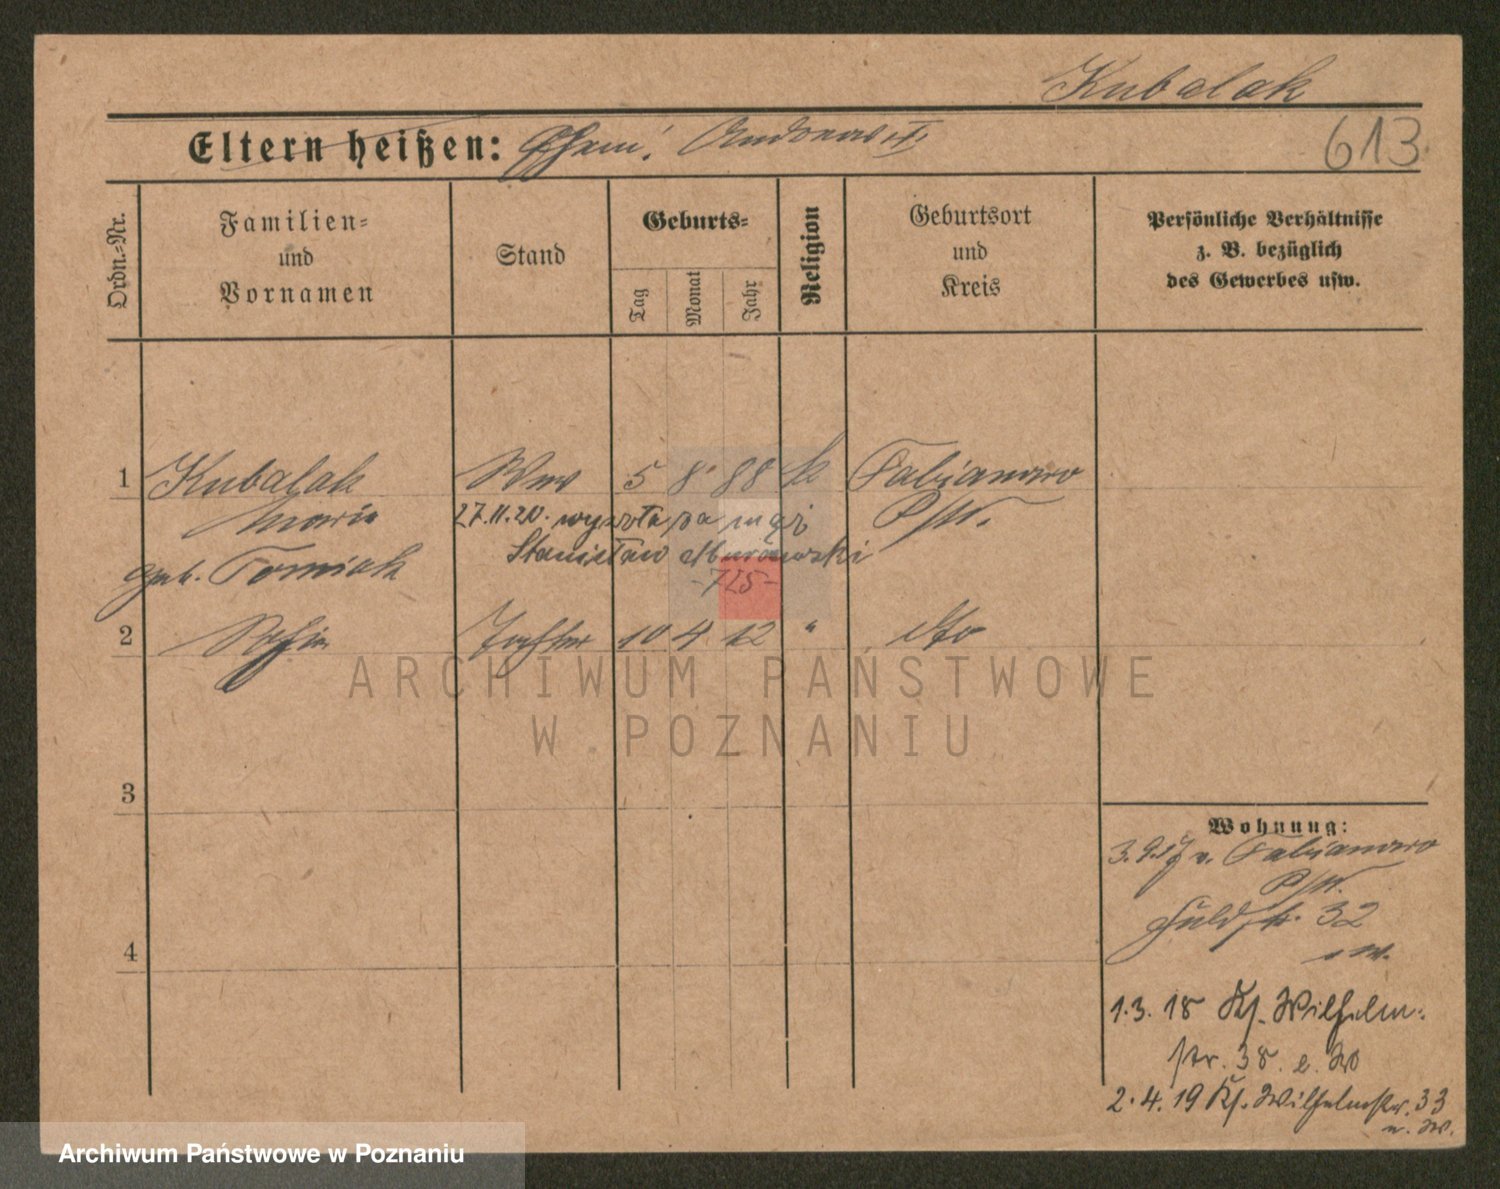 Kubalak
Eltern heißen: Ehem:
613
Ordn.-Nr.
Familien-
und
Vornamen
Stand
Geburts-
Tag
Monat
Jahr
Religion
Geburtsort
und
Kreis
Persönliche Verhältnisse
z. B. bezüglich
des Gewerbes usw.
1 Kubalak Wwe 5 8 88 k Fabianowo
Maria 27.11.20. wyszła za mąż
Stanisław
geb. Tomiak
-725-
2 Sofia Tochter 10 4 12 " dto
ARCHIWUM PAŃSTWOWE
W POZNANIU
3
4
Wohnung:
3.9.17 v. Fabianowo
32
1.3.18 Wilhelm-
str. 38.
2.4.19 Wilhelmstr. 33
Archiwum Państwowe w Poznaniu